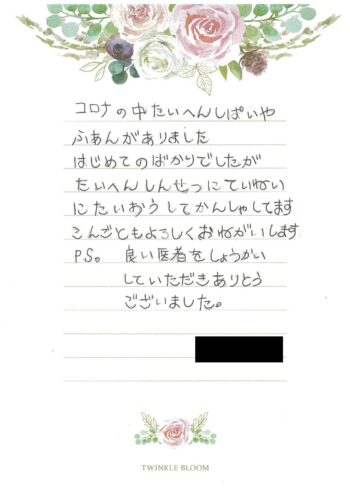 コロナの中たいへんしぱいや
ふあんがありました
はじめてのばかりでしたが
たいへんしんせつにていねい
にたいおうしてかんしゃしてます
こんごともよろしくおねがいします
PS。 良い医者をしょうかい
していただきありとう
ございました。
TWINKLE BLOOM